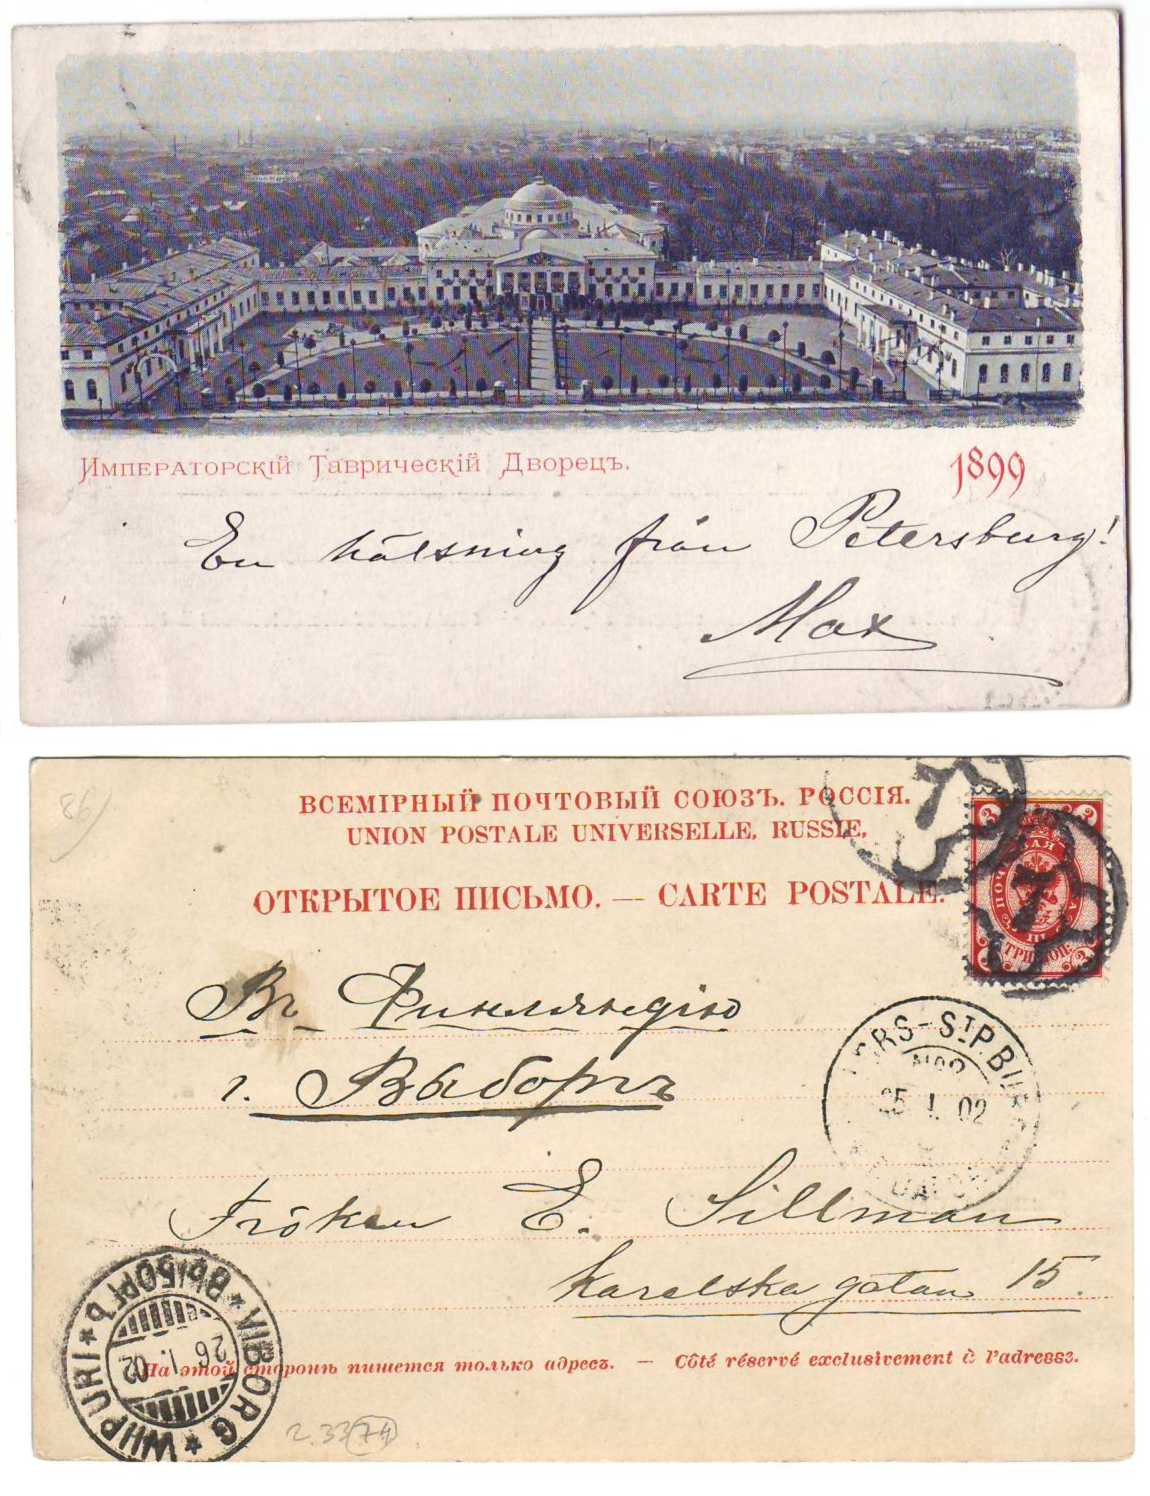 Императорскій Таврическій Дворецъ.
1899
En hälsning från Petersburg!
Max
86
ВСЕМІРНЫЙ ПОЧТОВЫЙ СОЮЗЪ. РОССІЯ.
UNION POSTALE UNIVERSELLE. RUSSIE.
ОТКРЫТОЕ ПИСЬМО. — CARTE POSTALE.
7
7
3 3
ПОЧТОВАЯ
III
ТРИ КОП.
Въ Финляндію
г. Выборгъ
Fröken E. Sillman
Karelska gatan 15.
ST P.B
25 I. 02
ВЫБОРГЪ * VIBORG * WIIPURI *
26.I.02
На этой сторонѣ пишется только адресъ. — Côté réservé exclusivement à l'adresse.
2.33 (74)